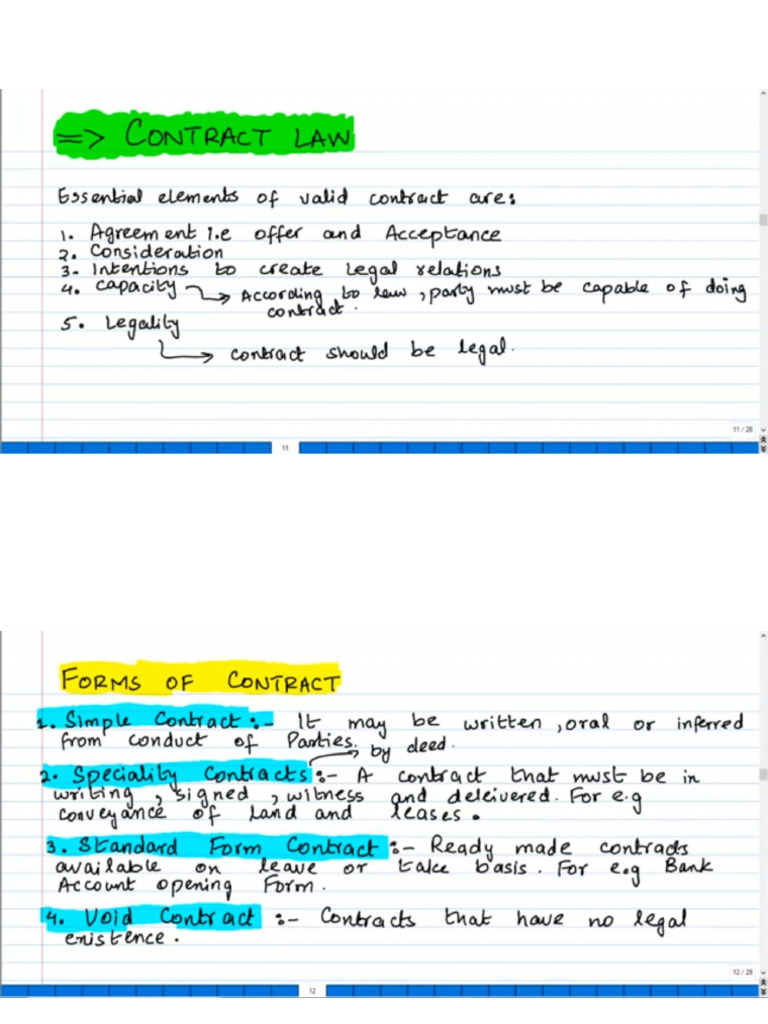 => CONTRACT LAW
Essential elements of valid contract are:
1. Agreement i.e offer and Acceptance
2. Consideration
3- Intentions to create Legal relations
4. Capacity → According to law, party must be capable of doing
contract.
5. Legality
→ contract should be legal.
11 / 28
11
FORMS OF CONTRACT
1. Simple Contract:- It may be written, oral or inferred
from conduct of Parties.
by deed.
2. Speciality Contracts:- A contract that must be in
writing, signed, witness and deleivered. For e.g
conveyance of Land and leases.
3. Standard Form Contract:- Ready made contracts
available on leave or take basis. For e.g Bank
Account opening Form.
4. Void Contract:- Contracts that have no legal
existence.
12 / 28
12